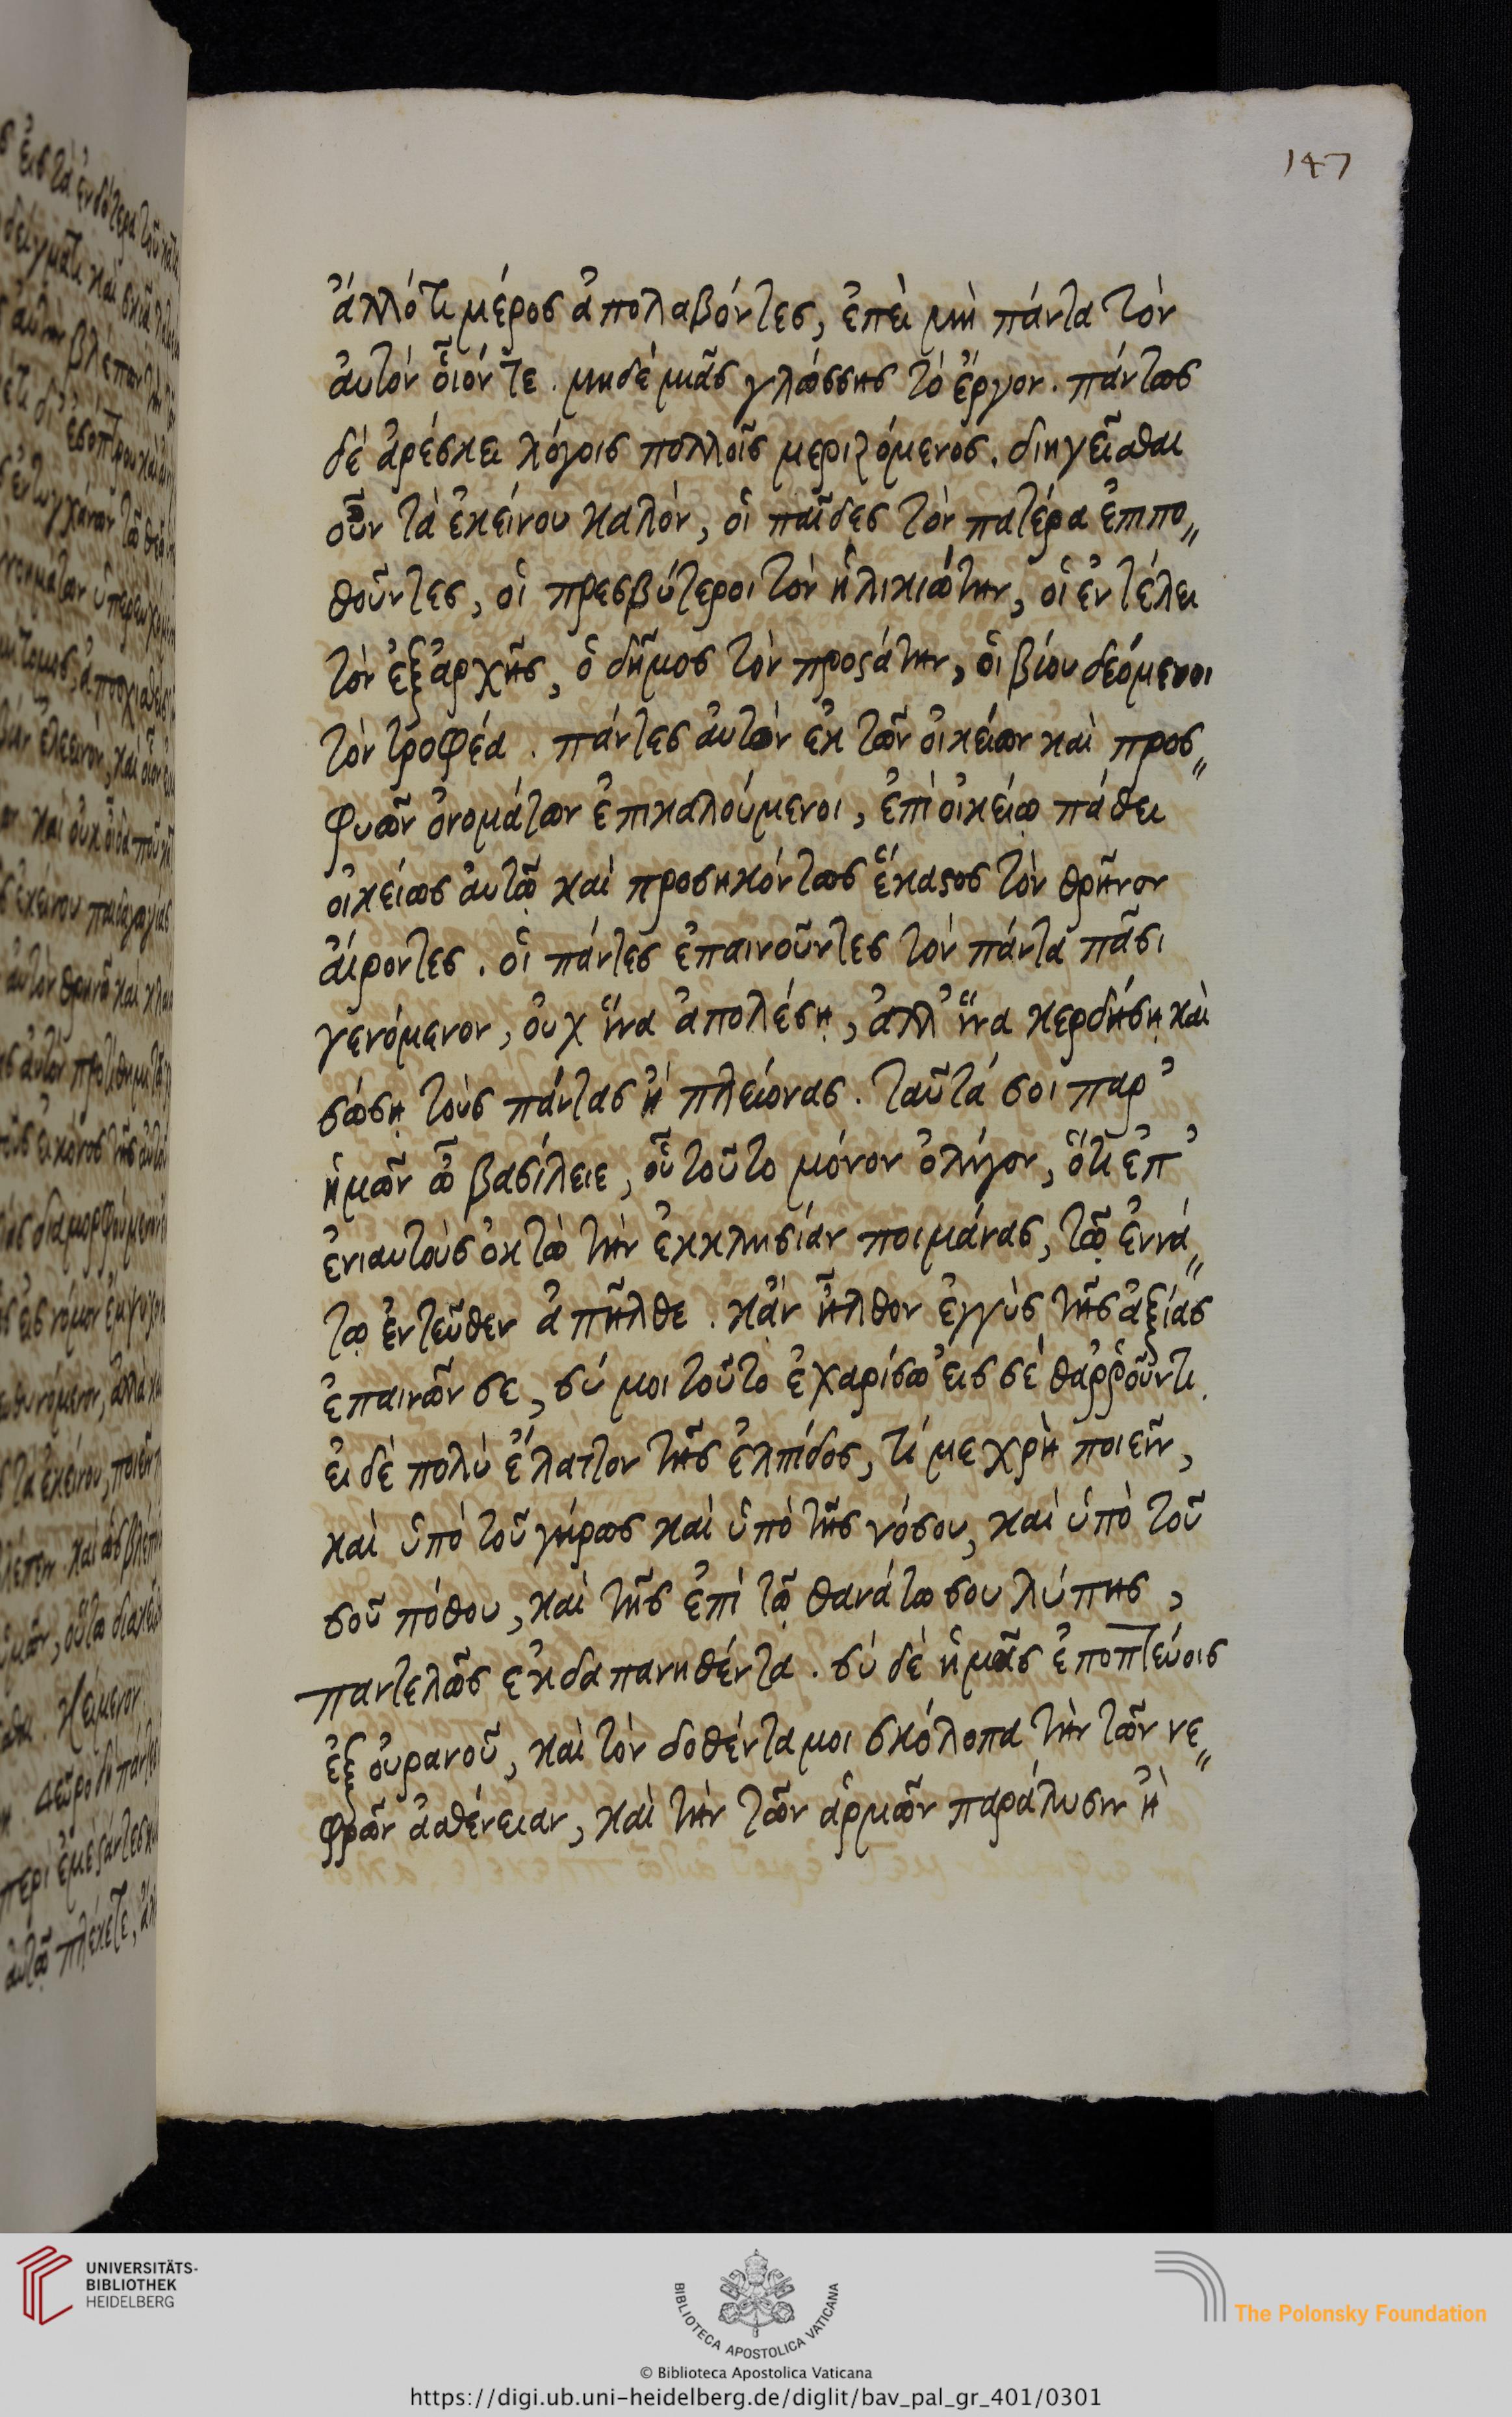 147
ἄλλό τι μέρος ἀπολαβόντες, ἐπεὶ μὴ πάντα τὸν
ἀυτὸν οἷόν τε. μηδὲ μιᾶς γλώσσης τὸ ἔργον. πάντως
δὲ ἀρέσκει λόγοις πολλοῖς μεριζόμενος. διηγεῖσθαι
οὖν τὰ ἐκείνου καλὸν, οἱ παῖδες τὸν πατέρα ἐπιπο〃
θοῦντες, οἱ πρεσβύτεροι τὸν ἡλικιώτην, οἱ ἐν τέλει
τὸν ἐξἀρχῆς, ὁ δῆμος τὸν προςάτην, ὁι βίου δεόμενοι
τὸν τροφέα. πάντες ἀυτὸν ἐκ τῶν ὀικείων καὶ προσ〃
φυῶν ὀνομάτων ἐπικαλούμενοι, ἐπὶ ὀικείῳ πάθει
ὀικείως ἀυτῷ καὶ προσηκόντως ἕκαςος τὸν θρῆνον
ἀίροντες. ὁι πάντες ἐπαινοῦντες τὸν πάντα πᾶσι
γενόμενον, ὀυχ ἵνα ἀπολέσῃ, ἀλλ᾽ ἵνα κερδήσῃ καὶ
σώσῃ τοὺς πάντας ἢ πλείονας. ταῦτά σοι παρ᾽
ἡμῶν ὦ βασίλειε, οὗ τοῦτο μόνον ὀλίγον, ὅτι ἐπ᾽
ἐνιαυτοὺς ὀκτὼ τὴν ἐκκλησίαν ποιμάνας, τῷ ἐννά〃
τῳ ἐντεῦθεν ἀπῆλθε. κἂν ἦλθον ἐγγὺς τῆς ἀξίας
ἐπαινῶν σε, σύ μοι τοῦτο ἐχαρίσω ἐις σὲ θαῤῥοῦντι.
ἐι δὲ πολὺ ἔλαττον τῆς ἐλπίδος, τί με χρὴ ποιεῖν,
καὶ ὑπὸ τοῦ γήρως καὶ ὑπὸ τῆς νόσου, καὶ ὑπὸ τοῦ
σοῦ πόθου, καὶ τῆς ἐπὶ τῷ θανάτω σου λύπης,
παντελῶς ἐκδαπανηθέντα. σὺ δὲ ἡμᾶς ἐποπτεύοις
ἐξ ὀυρανοῦ, καὶ τὸν δοθέντα μοι σκόλοπα τὴν τῶν νε〃
φρῶν ἀσθένειαν, καὶ τὴν τῶν ἁρμῶν παράλυσιν ἢ
UNIVERSITÄTS-
BIBLIOTHEK
HEIDELBERG
BIBLIOTECA APOSTOLICA VATICANA
© Biblioteca Apostolica Vaticana
The Polonsky Foundation
https://digi.ub.uni-heidelberg.de/diglit/bav_pal_gr_401/0301